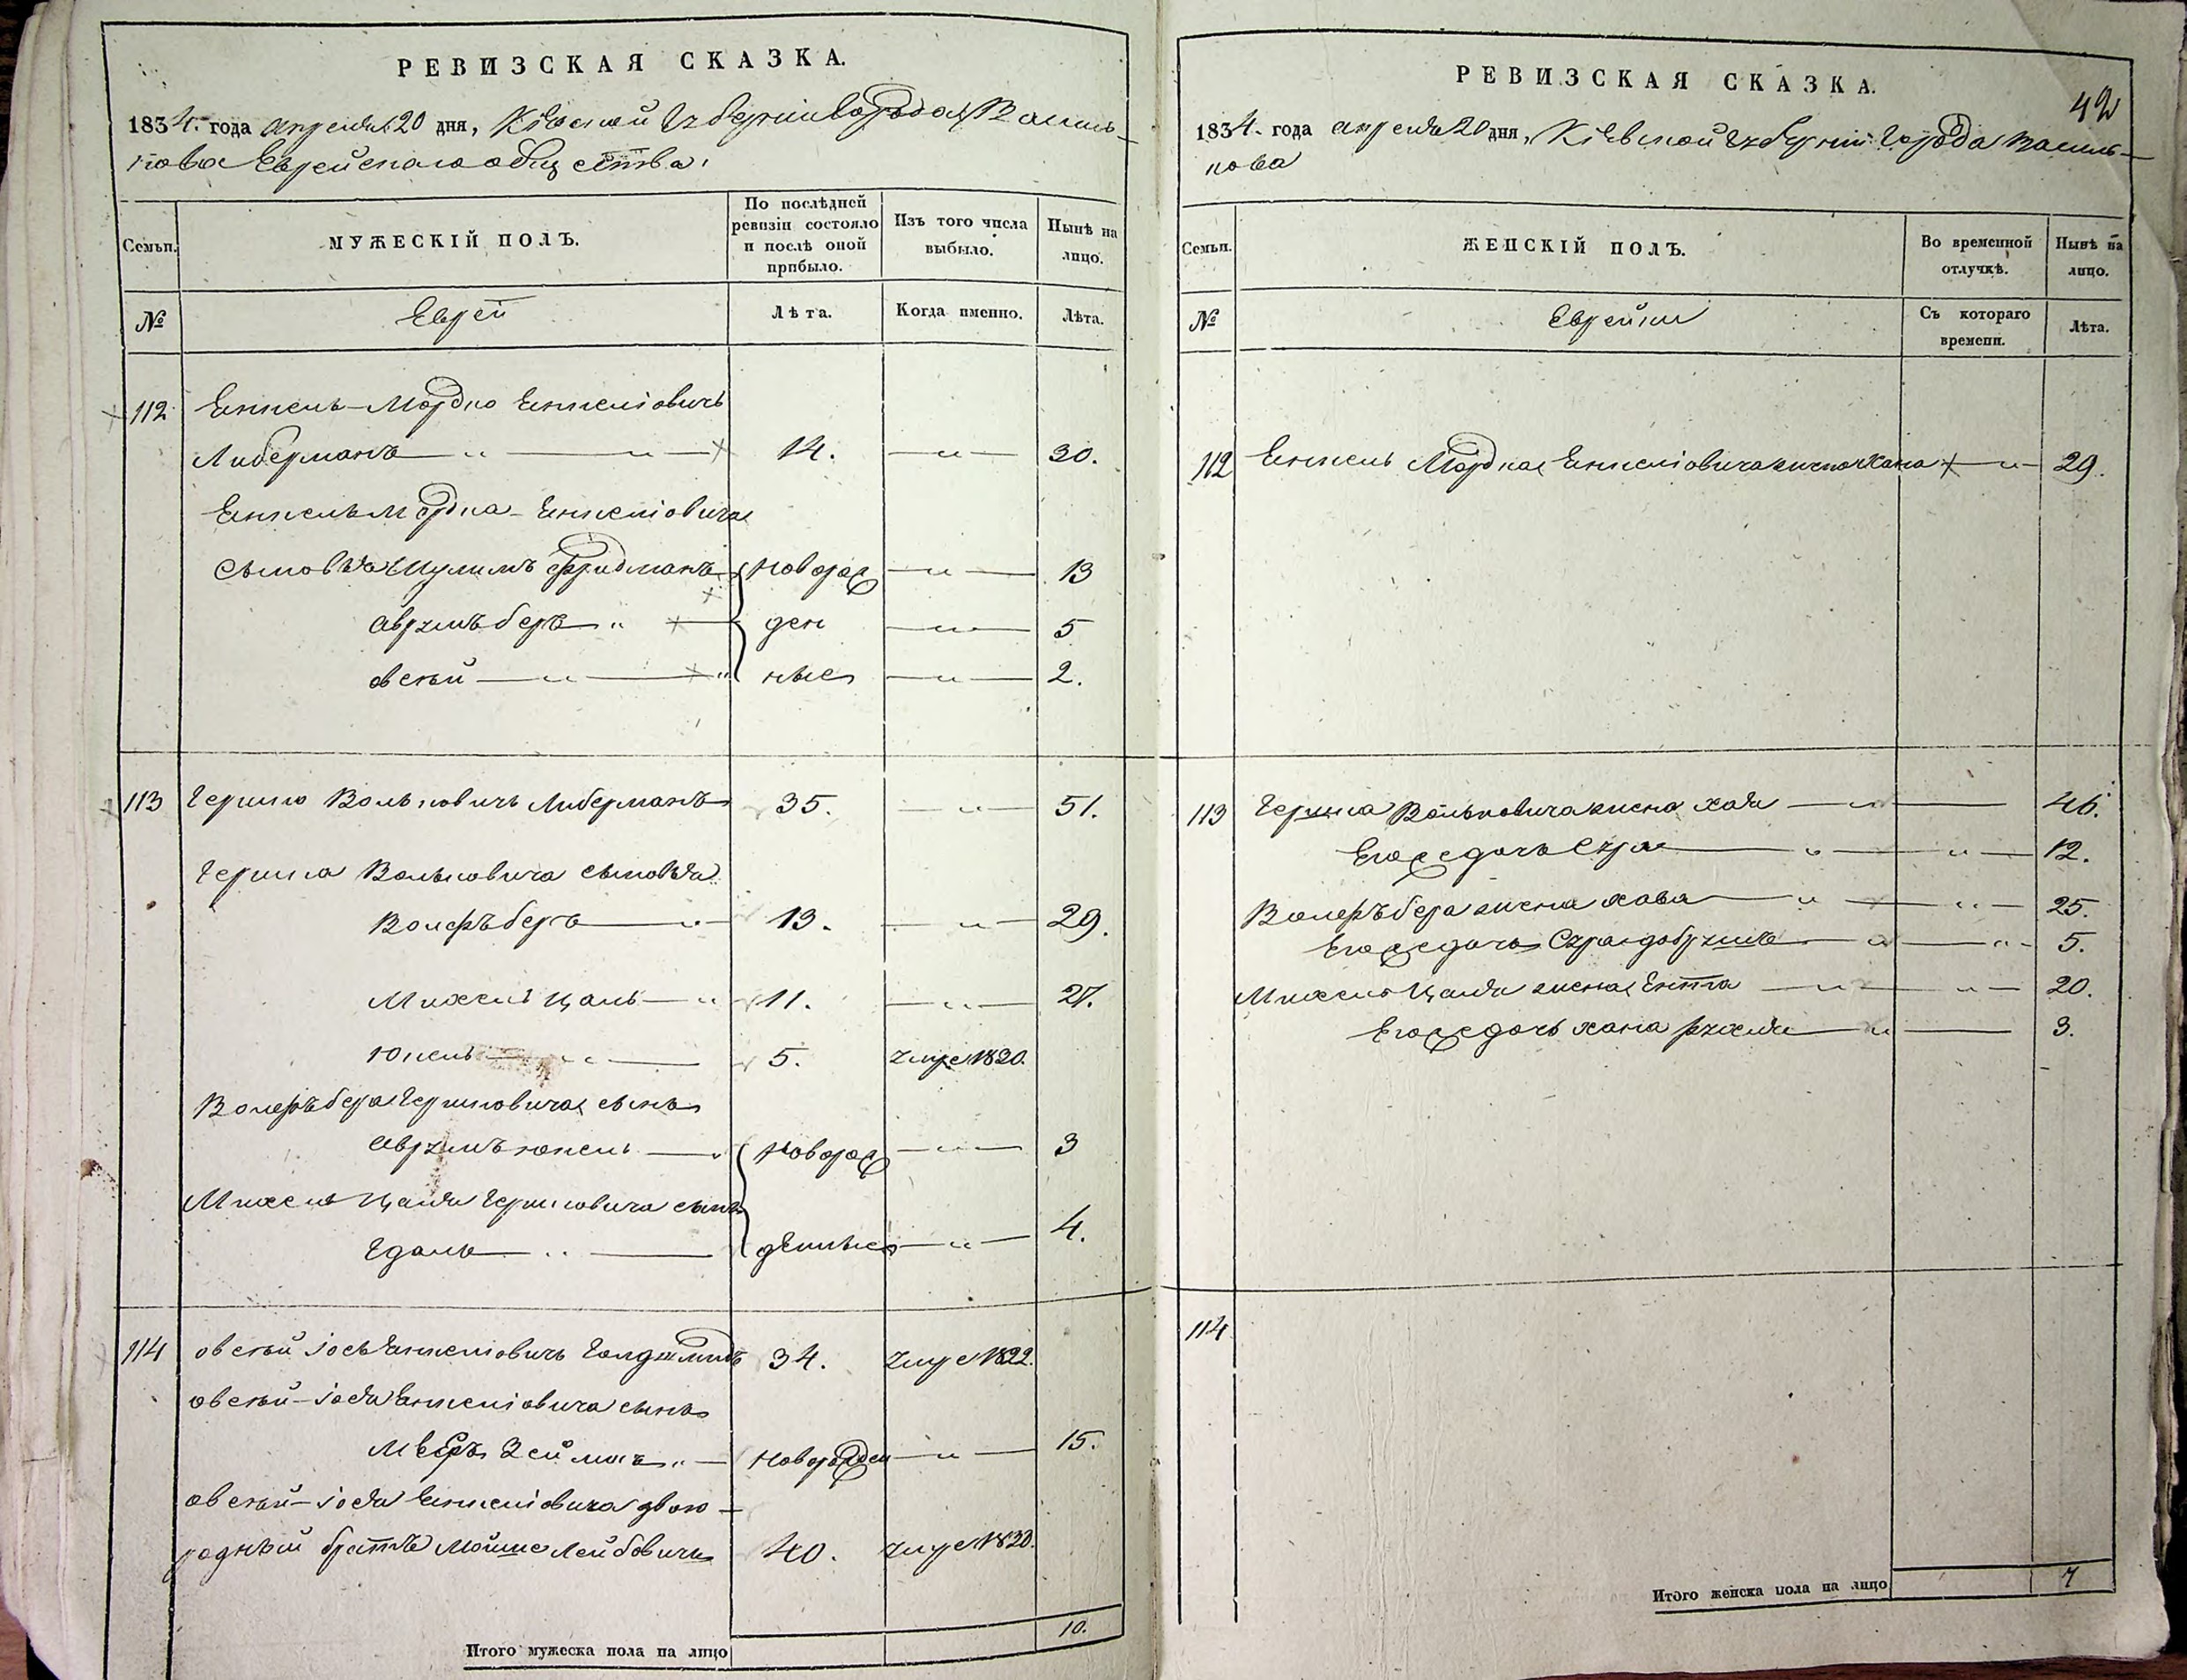 РЕВИЗСКАЯ СКАЗКА.
1834. года апреля 20 дня, Кіевской Губерніи Города Василь-
кова Еврейскаго общества.
Семьи.
МУЖЕСКІЙ ПОЛЪ.
По послѣдней ревизіи состояло и послѣ оной прибыло.
Изъ того числа выбыло.
Нынѣ на лицо.
№
Еврей
Лѣта.
Когда именно.
Лѣта.
112 Енкель-Мордко Енкеліовичъ
Либерманъ 14. 30.
Енкель Мордка Енкеліовича
сыновья Шулимъ Фридманъ новорож 13
Аврумъ беръ ден 5
овсѣй ные 2.
113 Гершко Вольковичъ Либерманъ 35. 51.
Гершка Вольковича сыновья
Волефъ беръ 13. 29.
Михель Цаль 11. 27.
Юкель 5. умре 1820.
Волефъ бера Гершковича сынъ
Аврумъ юкель новорож 3
Михеля Цаля Гершковича сынъ
Едаль денные 4.
114 овсѣй іось Енкеліовичъ Голдшмидъ 34. умре 1822.
овсѣй-іося Енкеліовича сынъ
Мееръ Зейманъ новорожден 15.
овсѣй-іося Енкеліовича двою-
родный братъ Мойше Лейбовичъ 40. умре 1830.
Итого мужеска пола на лицо 10.
РЕВИЗСКАЯ СКАЗКА.
42
1834. года апреля 20 дня, Кіевской Губерніи Города Василь-
кова
Семьи.
ЖЕНСКІЙ ПОЛЪ.
Во временной отлучкѣ.
Нынѣ на лицо.
№
Еврейки
Съ котораго времени.
Лѣта.
112 Енкель Мордка Енкеліовича жена Хана 29.
113 Гершка Вольковича жена хая 46.
Его же дочь Сура 12.
Волефъ бера жена хава 25.
Его же дочь Сура добруша 5.
Михеля Цаля жена Ента 20.
Его же дочь хана рухля 3.
114
Итого женска пола на лицо 7